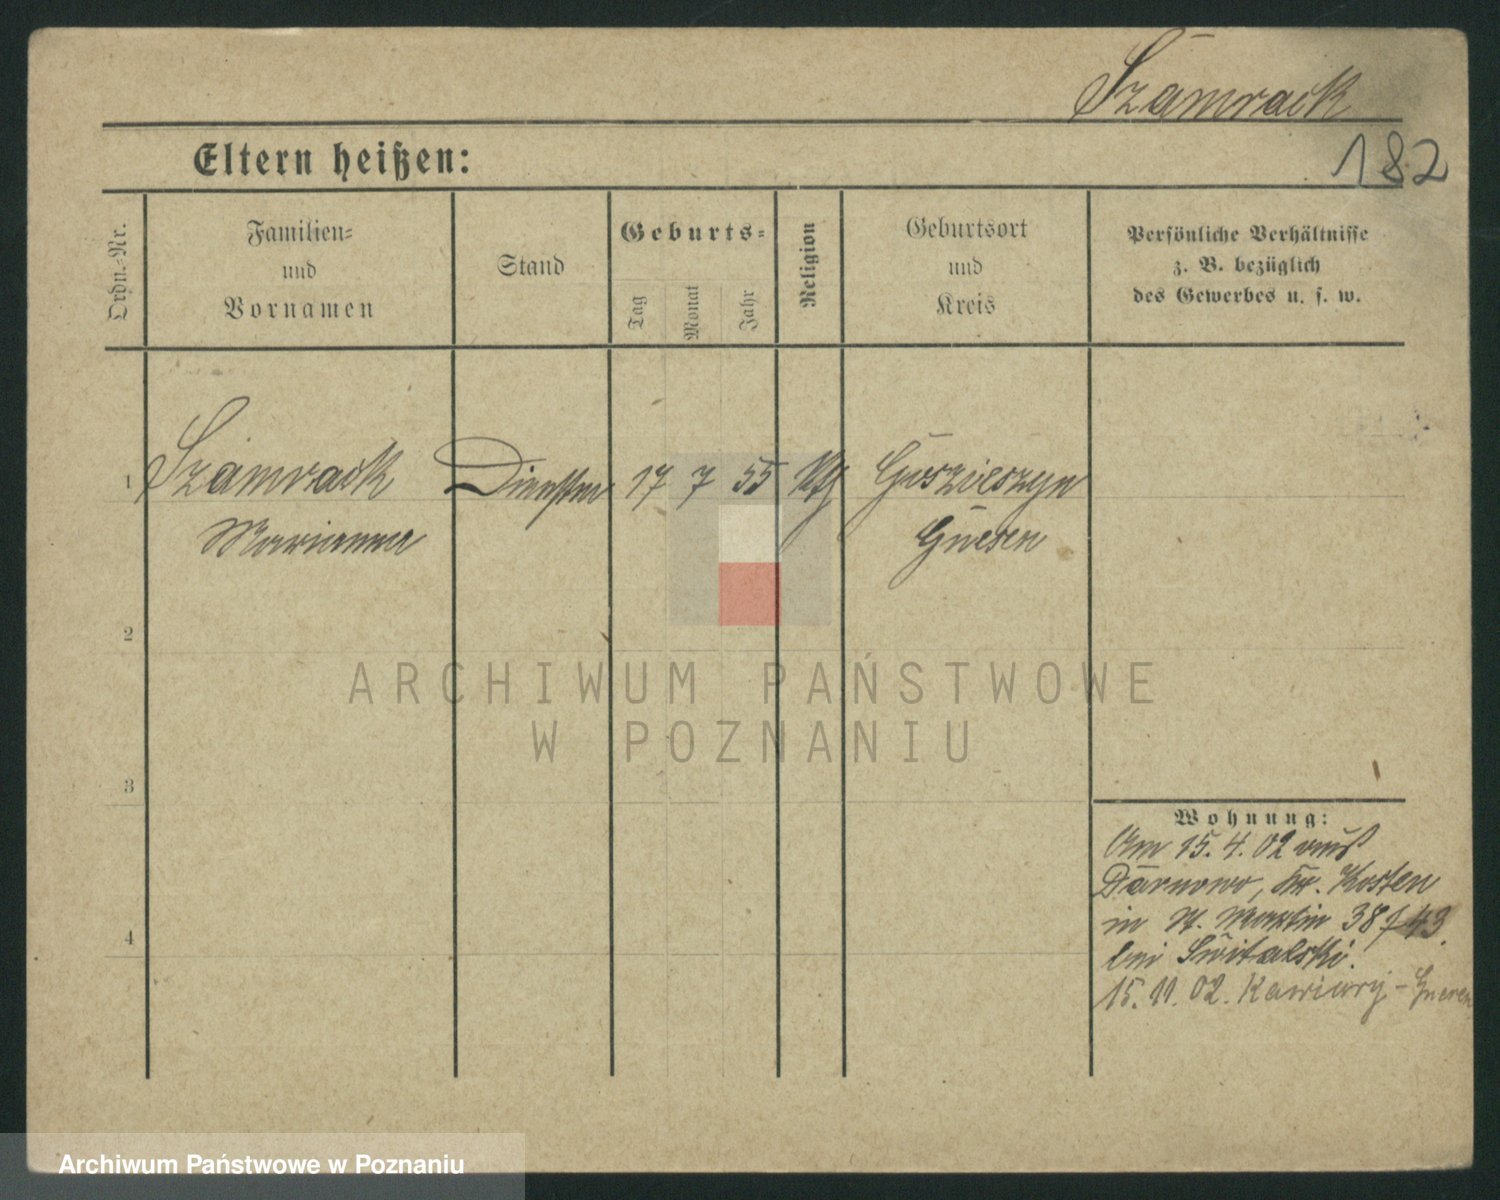 Szamraik
182
Eltern heißen:
Ordn.-Nr.
Familien-
und
Vornamen
Stand
Geburts-
Tag
Monat
Jahr
Religion
Geburtsort
und
Kreis
Persönliche Verhältnisse
z. B. bezüglich
des Gewerbes u. s. w.
1 17 7 55
Marianna Gnesen
2
3
4
Wohnung:
Am 15. 4. 02 aus
Darnowo, Kr. Kosten
in St. Martin 38 / 43
bei Switalski.
15. 11. 02. - Gnesen
ARCHIWUM PAŃSTWOWE
W POZNANIU
Archiwum Państwowe w Poznaniu